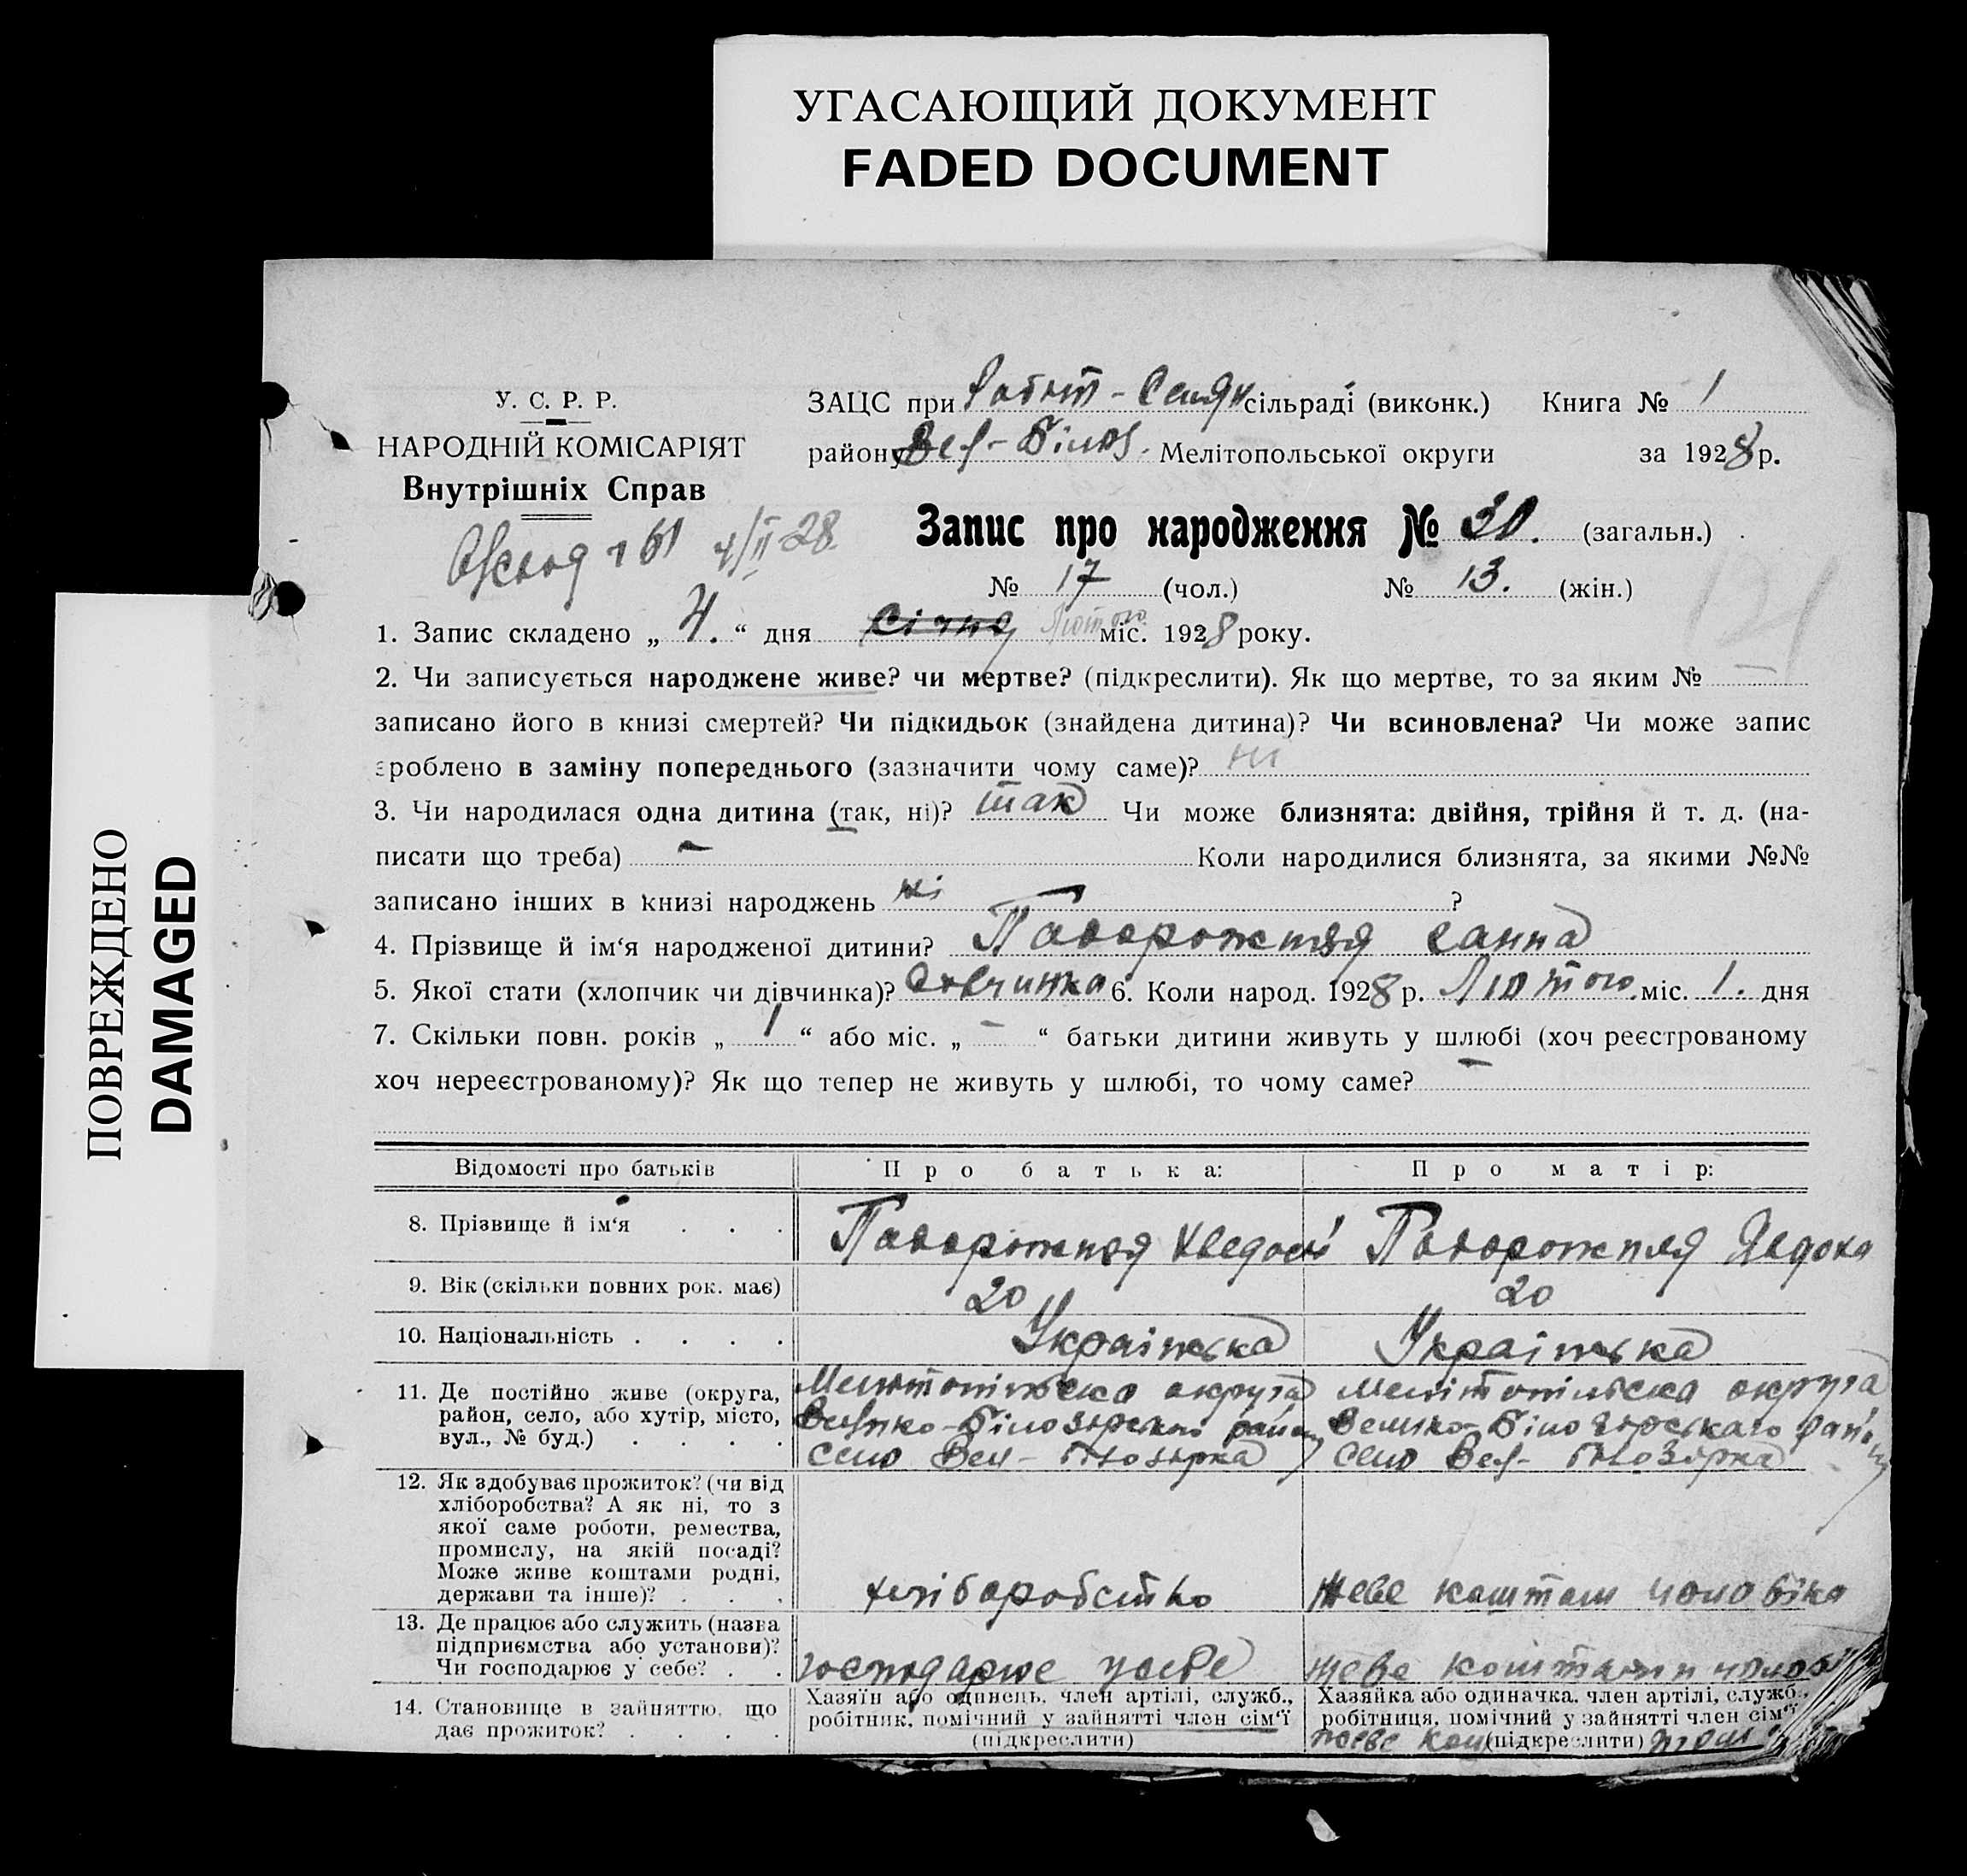 УГАСАЮЩИЙ ДОКУМЕНТ
FADED DOCUMENT
ПОВРЕЖДЕНО
DAMAGED
У. С. Р. Р.
НАРОДНІЙ КОМІСАРІЯТ
Внутрішніх Справ
4/II 28
ЗАЦС при сільраді (виконк.) Книга № 1
району Вел-Білоз. Мелітопольської округи за 1928 р.
Запис про народження № 30. (загальн.)
№ 17 (чол.) № 13. (жін.)
121
1. Запис складено „ 4. “ дня січня Лютого міс. 1928 року.
2. Чи записується народжене живе? чи мертве? (підкреслити). Як що мертве, то за яким №
записано його в книзі смертей? Чи підкидьок (знайдена дитина)? Чи всиновлена? Чи може запис
зроблено в заміну попереднього (зазначити чому саме)? ні
3. Чи народилася одна дитина (так, ні)? так Чи може близнята: двійня, трійня й т. д. (на-
писати що треба) - Коли народилися близнята, за якими №№
записано інших в книзі народжень ні ?
4. Прізвище й ім‘я народженої дитини? Подорожняя Ганна
5. Якої стати (хлопчик чи дівчинка)? Дівчинка 6. Коли народ. 1928 р. Лютого міс. 1. дня
7. Скільки повн. років „ 1 “ або міс. „ - “ батьки дитини живуть у шлюбі (хоч реєстрованому
хоч нереєстрованому)? Як що тепер не живуть у шлюбі, то чому саме? -
Відомості про батьків Про батька: Про матір:
8. Прізвище й ім‘я . . . Подорожняя Хведось Подорожняя Явдоха
9. Вік (скільки повних рок. має) 20 20
10. Національність . . . . Українська Українська
11. Де постійно живе (округа, Мелітопільска округа Мелітопільска округа
район, село, або хутір, місто, Велико-Білозірского району Велико-Білозірського району
вул., № буд.) . . . . село Вел-Білозірка село Вел-Білозірка
12. Як здобуває прожиток? (чи від
хліборобства? А як ні, то з
якої саме роботи, ремества,
промислу, на якій посаді?
Може живе коштами родні,
держави та інше)? . . . хліборобство живе коштам чоловіка
13. Де працює або служить (назва
підприємства або установи)?
Чи господарює у себе? . . господарює у себе живе коштами чолов
14. Становище в зайняттю, що
дає прожиток? . . . .
Хазяїн або одинець, член артілі, служб.,
робітник, помічний у зайнятті член сім‘ї
(підкреслити)
Хазяйка або одиначка, член артілі, служб.,
робітниця, помічний у зайнятті член сім‘ї
живе кош (підкреслити)